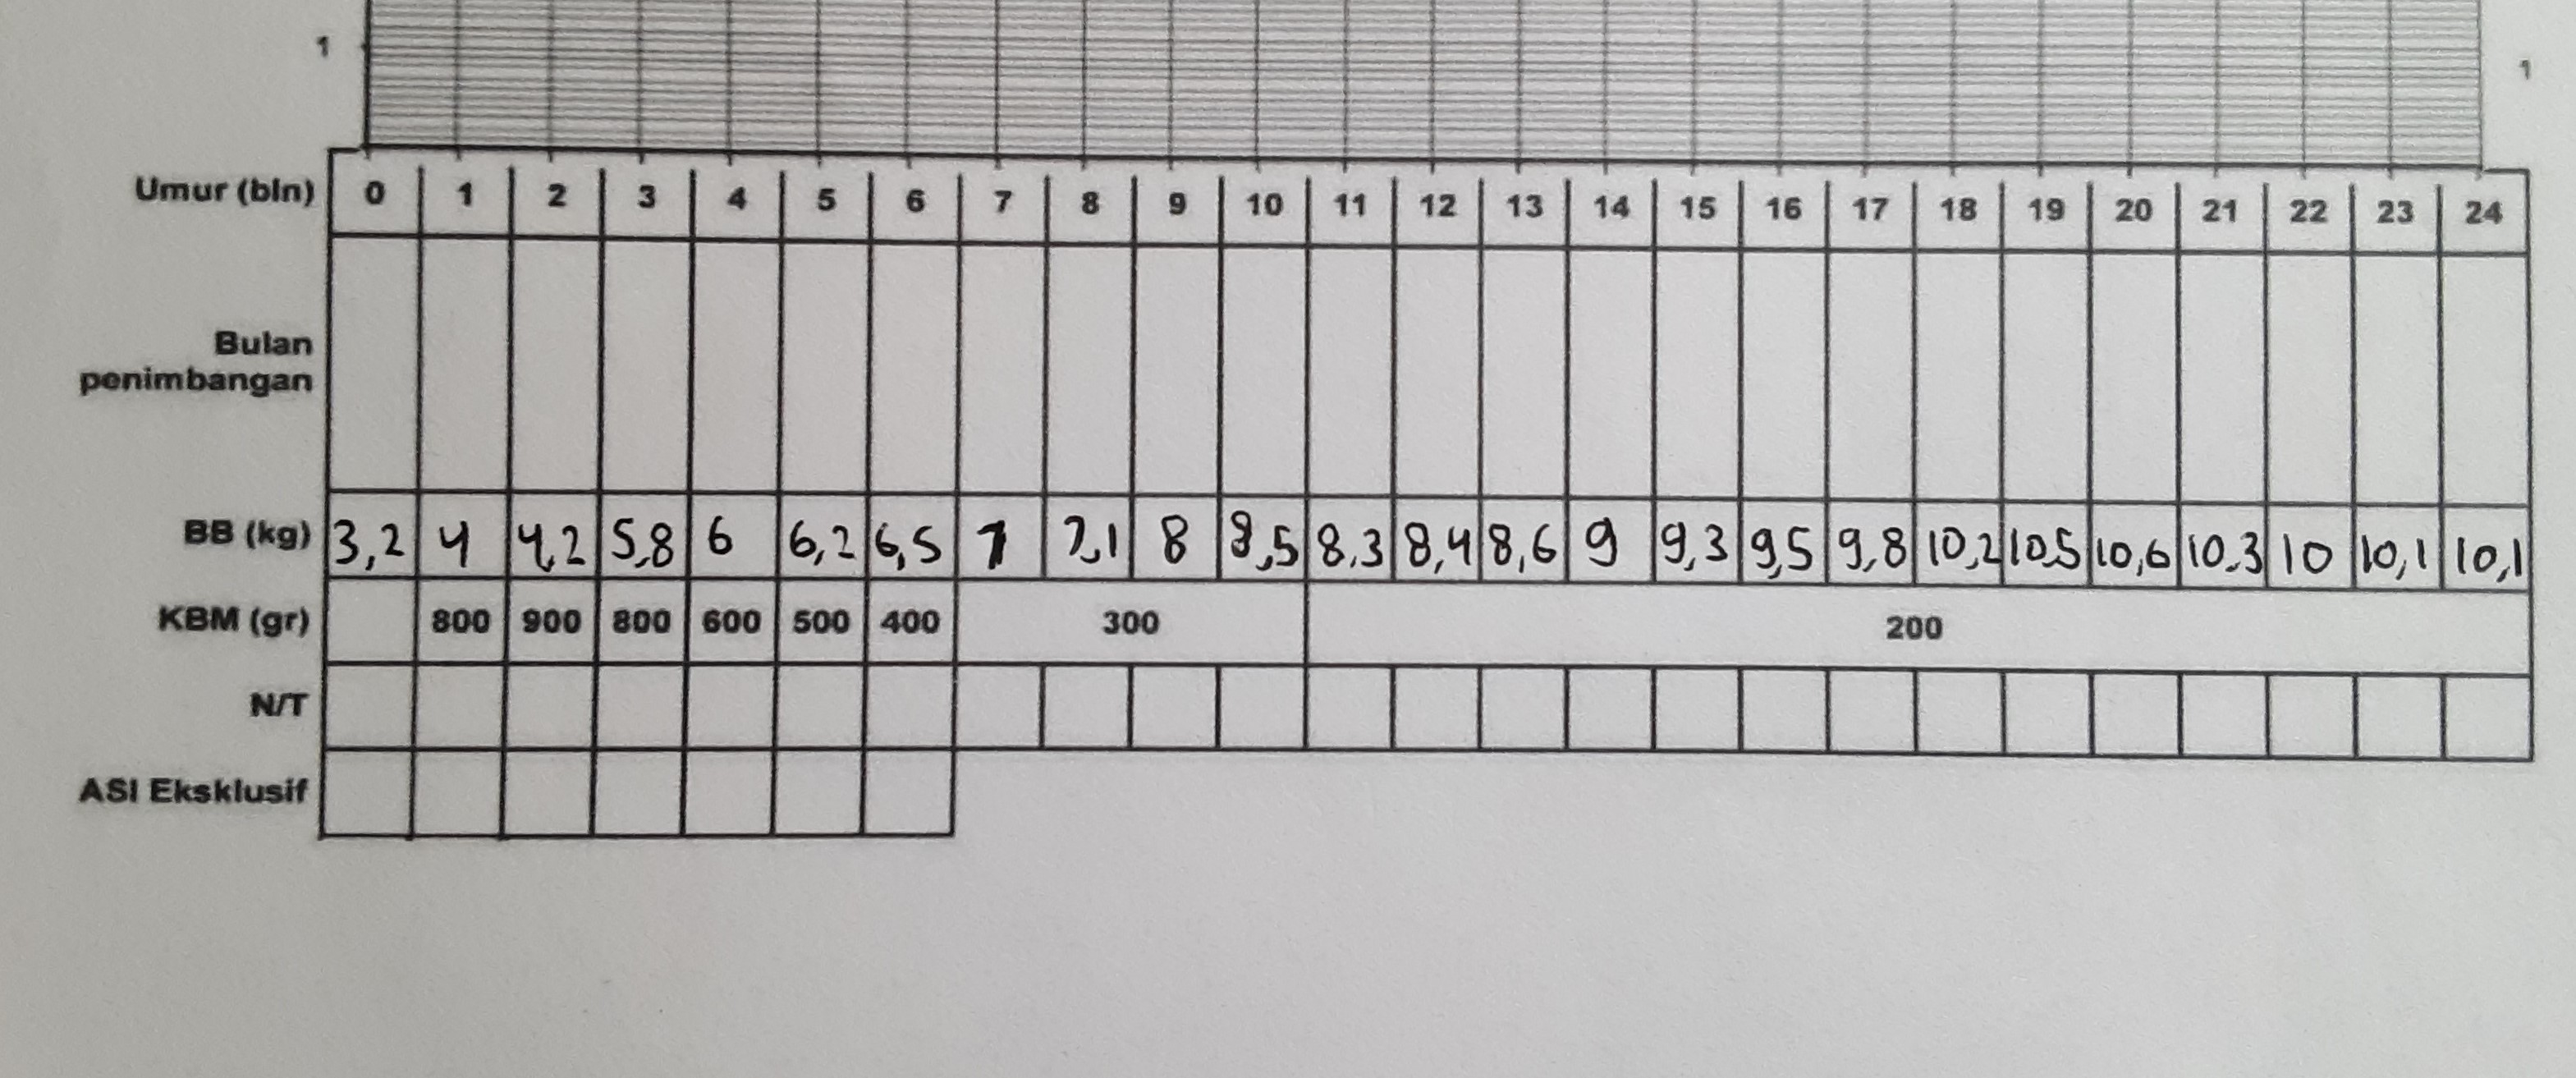 1 1
Umur (bln) 0 1 2 3 4 5 6 7 8 9 10 11 12 13 14 15 16 17 18 19 20 21 22 23 24
Bulan
penimbangan
BB (kg) 3,2 4 4,2 5,8 6 6,2 6,5 7 7,1 8 8,5 8,3 8,4 8,6 9 9,3 9,5 9,8 10,2 10,5 10,6 10,3 10 10,1 10,1
KBM (gr) 800 900 800 600 500 400 300 200
N/T
ASI Eksklusif